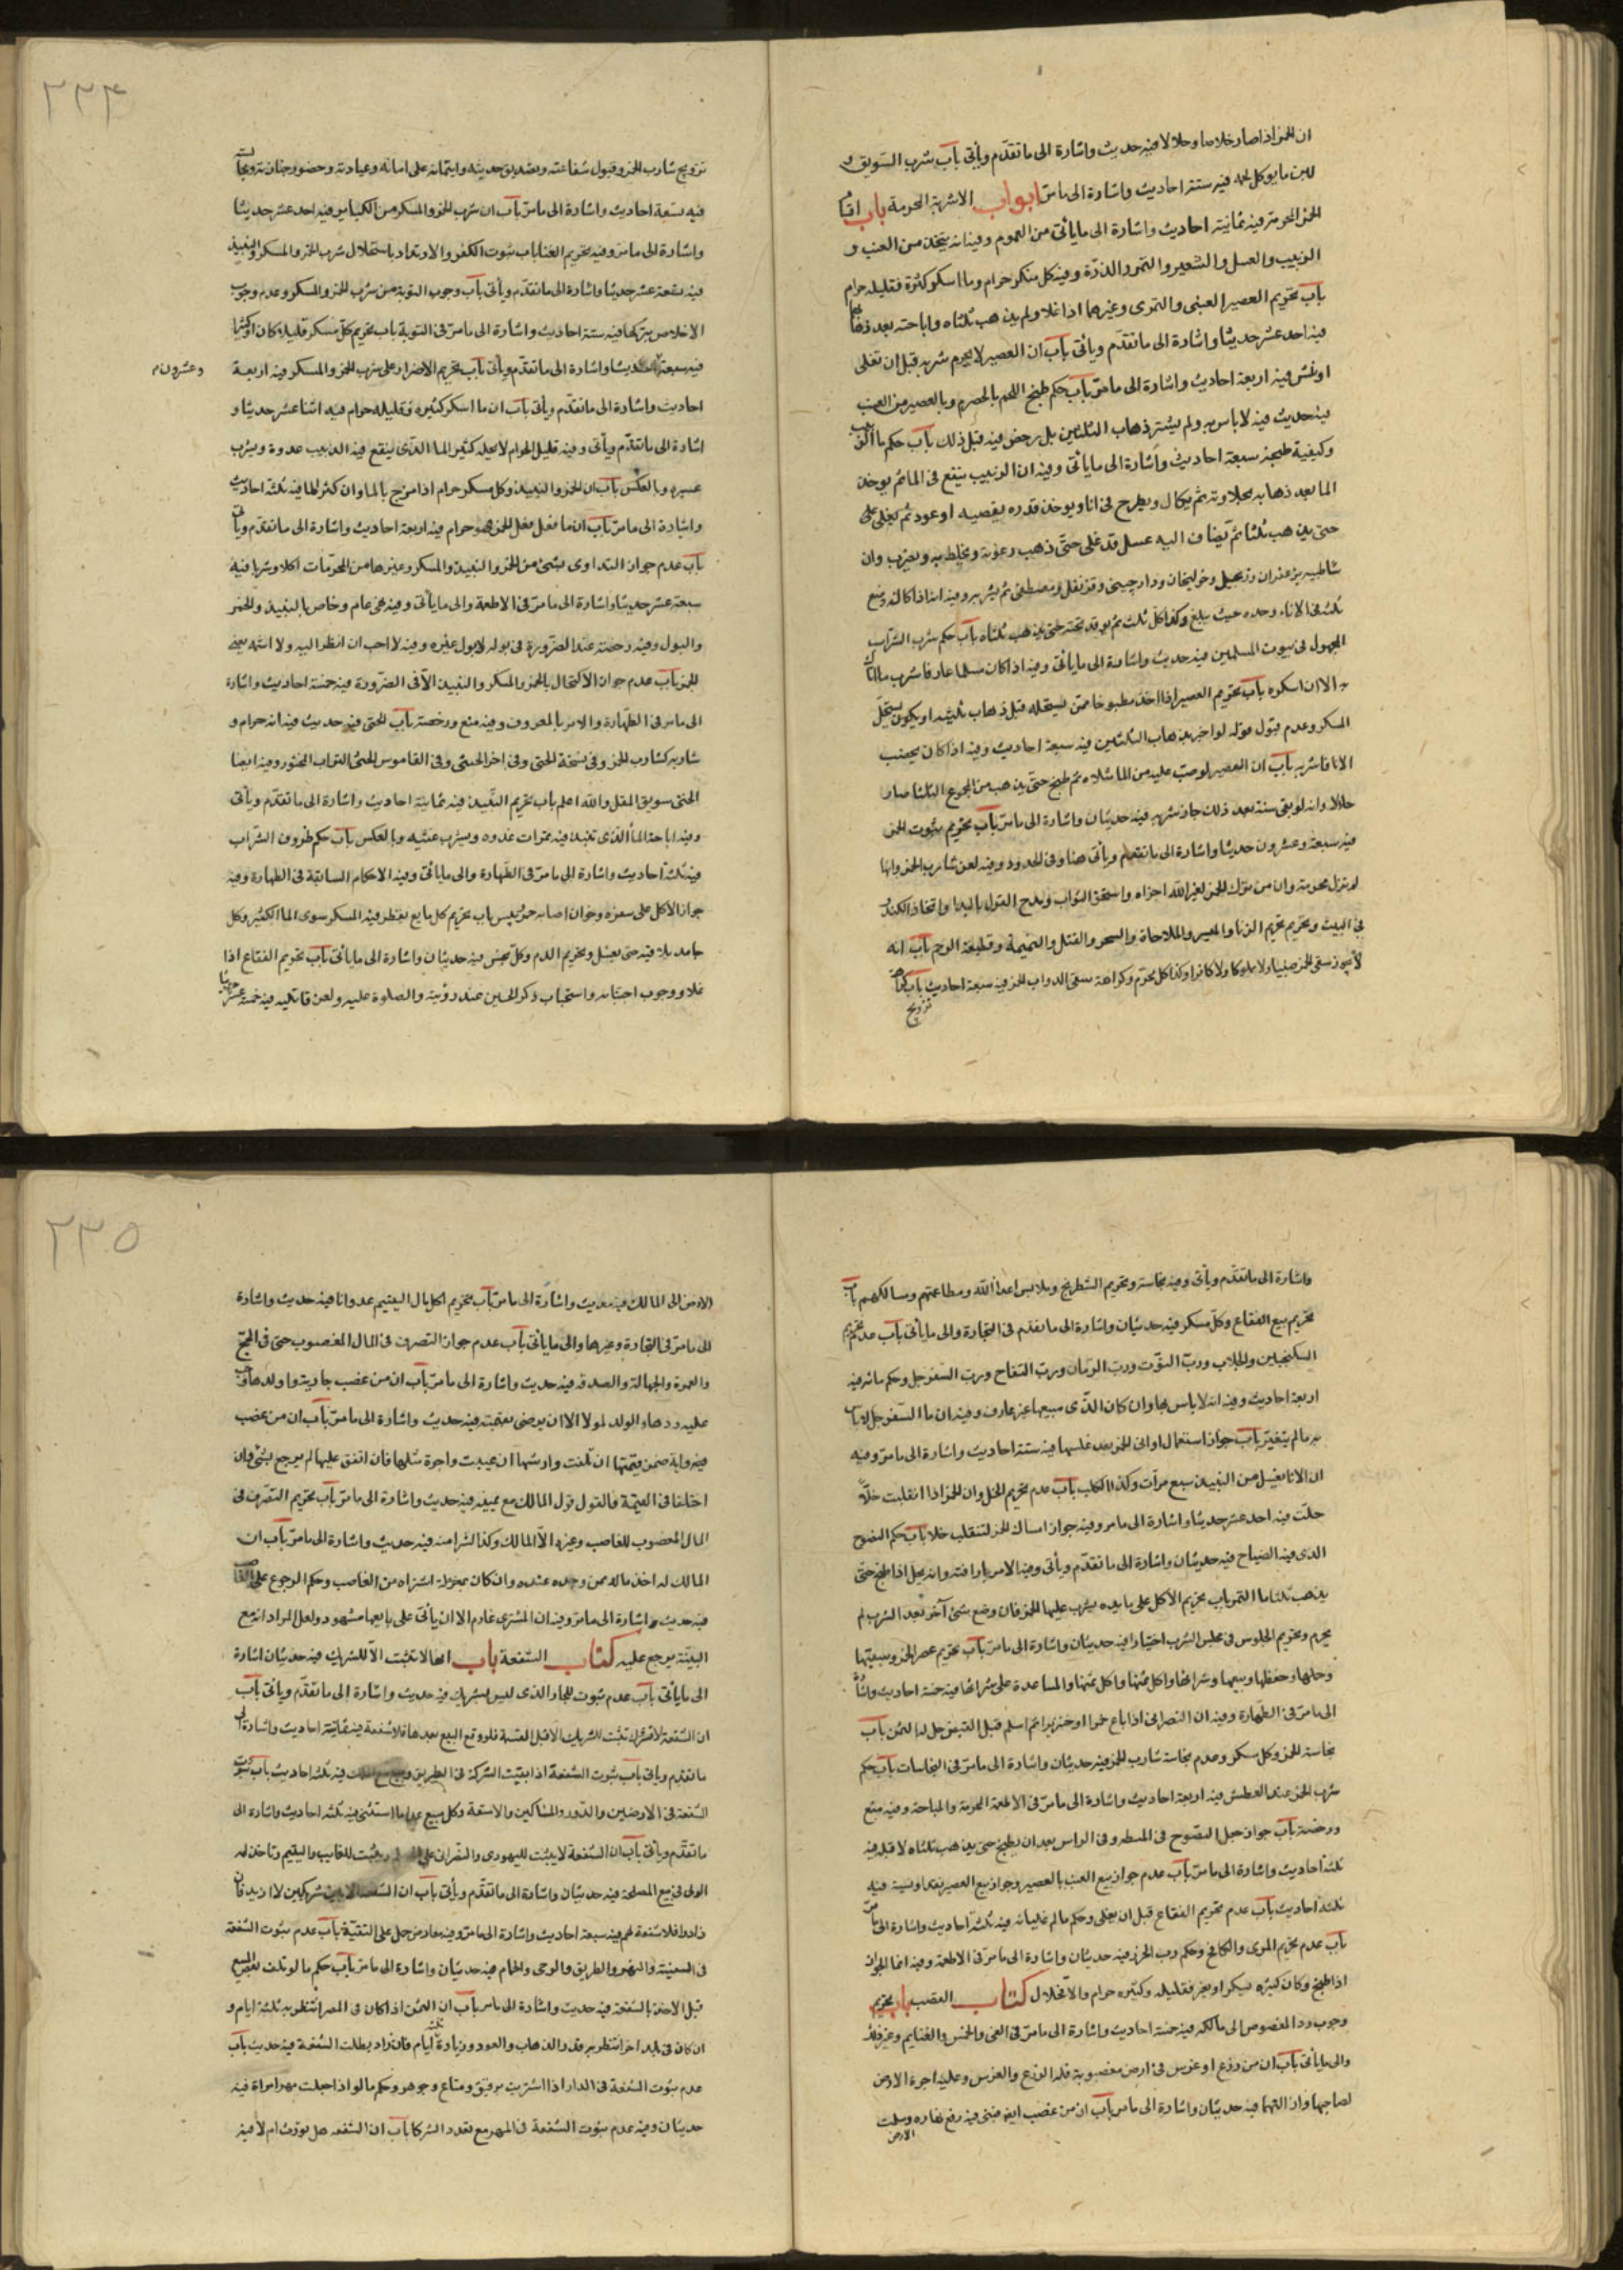 ان الخمر اذا صار خلا صار حلالا فيه حديث واشارة الى ما تقدّم ويأتى باب شرب السّويق و
للبن ما يوكل لحمه فيه ستة احاديث واشارة الى مامرّ ابواب الاشربة المحرمة باب اقسام
الخمر المحرمة فيه ثمانية احاديث واشارة الى ما يأتى من العموم وفيه انه يتخذ من العنب و
الزبيب والعسل والشعير والتمر والذرّة وفيه كل مسكر حرام وما اسكر كثيره فقليله حرام
باب تحريم العصير العنبى والتمرى وغيرهما اذا غلا ولم يذهب ثلثاه واباحته بعد ذهابهما
فيه احد عشر حديثا واشارة الى ما تقدّم ويأتى باب ان العصير لا يحرم شربه قبل ان تغلى
او نشّ فيه اربعة احاديث واشارة الى مامرّ باب حكم طبخ اللحم بالحصرم وبالعصير من العنب
فيه حديث فيه لا باس به ولم يشترط ذهاب الثلثين بل رخص فيه قبل ذلك باب حكم ماء الزبيب
وكيفية طبخه سبعة احاديث واشارة الى ما يأتى وفيه ان الزبيب ينقع فى الماء ثم يوخذ
الماء بعد ذهابه بحلاوته ثم يكال ويطرح فى اناء ويوخذ قدره بقصبه او عود ثم يغلى على
حتى يذهب ثلثا ثم يضاف اليه عسل قد غلى حتى ذهب رغوته ويخلط به ويضرب وان
شاء طيبه بزعفران وزنجبيل وخولنجان ودارچينى وقرنفل ومصطكى ثم يشربه وفيه انه اذا كاله وضع
ثلثه فى الاناء وحده حيث يبلغ وكذا كل ثلث ثم يوقد تحته حتى يذهب ثلثاه باب حكم شرب الشّراب
المجهول فى بيوت المسلمين فيه حديث واشارة الى ما يأتى وفيه اذا كان مسلما عارفا فاشرب ما اتاك
به الا ان اسكره باب تحريم العصير اذا اخذ مطبوخا ممن يستحله قبل ذهاب ثلثيه او يكون يستحلّ
المسكر وعدم قبول قوله لو اخبر بذهاب الثلثين فيه سبعة احاديث وفيه اذا كان يخضب
الاناء فاشربه باب ان العصير لو صبّ عليه من الماء مثلاه ثم طبخ حتى يذهب من المجموع الثلثا صار
حلالا وانه لو بقى سنة بعد ذلك جاز شربه فيه حديثان واشارة الى مامرّ باب تحريم بثبوت الخمر
فيه سبعة وعشرون حديثا واشارة الى ما تقدم ويأتى هنا وفى الحدود وفيه لعن شارب الخمر وانها
لم تزل محرمة وان من ترك الخمر لغير الله اجزاه واستحق الثواب
فى البيت وتحريم تحريم الزنا والميسر والملاحاة والسحر والقتل والنميمة وقطيعة الرحم باب انه
لا يجوز سقى الخمر صبيا ولا مملوكا ولا كافرا وكذا كل محرّم وكراهة سقى الدواب الخمر فيه سبعة احاديث باب كراهة
تزويج
٢٣٤
تزويج شارب الخمر وقبول شفاعته وتصديق حديثه وايتمانه على امانه وعيادته وحضور جنازته ومجالسته
فيه تسعة احاديث واشارة الى مامرّ باب ان شرب الخمر والمسكر من الكباير فيه احد عشر حديثا
واشارة الى مامر وفيه تحريم الغنا باب ثبوت الكفر والارتداد باستحلال شرب الخمر والمسكر والنبيذ
فيه بضعة عشر حديثا واشارة الى ما تقدّم ويأتى باب وجوب التوبة من شرب الخمر والمسكر وعدم وجوب
الاخلاص بتركها فيه ستة احاديث واشارة الى مامرّ فى التوبة باب تحريم كلّ مسكر قليلا كان او كثيرا
فيه سبعة حديثا واشارة الى ما تقدّم ويأتى باب تحريم الاصرار على شرب الخمر والمسكر فيه اربعة
وعشرون م
احاديث واشارة الى ما تقدّم ويأتى باب ان ما اسكر كثيره فقليله حرام فيه اثنا عشر حديثا و
اشارة الى ما تقدّم ويأتى وفيه قليل الحرام لا يحله كثير الماء الّذى ينقع فيه الزبيب غدوة ويشرب
عشيه وبالعكس باب ان الخمر والنبيذ وكل مسكر حرام اذا مزج بالماء وان كثر الماء فيه ثلثة احاديث
واشارة الى مامرّ باب ان ما فعل فعل الخمر فهو حرام فيه اربعة احاديث واشارة الى ما تقدّم ويأتى
باب عدم جواز التداوى بشئ من الخمر والنبيذ والمسكر وغيرها من المحرّمات اكلا وشربا فيه
سبعة عشر حديثا واشارة الى مامرّ فى الاطعمة والى ما يأتى وفيه نهى عام وخاص بالنبيذ والخمر
والبول وفيه رخصة عند الضّرورة فى بوله لا بول غيره وفيه لا احب ان انظر اليه ولا اشمه يعنى
الخمر باب عدم جواز الاكتحال بالخمر والمسكر والنبيذ الّا فى الضّرورة فيه خمسة احاديث واشارة
الى مامر فى الطّهارة والامر بالمعروف وفيه منع ورخصة باب الحثى فيه حديث فيه انه حرام و
شاربه كشارب الخمر وفى نسخة الحتى وفى اخر الحبثى وفى القاموس الحثى التراب المحثور وفيه ايضا
الحتى سويق المقل والله اعلم باب تحريم النّبيذ فيه ثمانية احاديث واشارة الى ما تقدّم ويأتى
وفيه اباحة الماء الّذى تنبذ فيه تمرات غدوه ويشرب عشيّه وبالعكس باب حكم ظروف الشّراب
فيه ثلثة احاديث واشارة الى مامرّ فى الطّهارة والى ما يأتى وفيه الاحكام السابقة فى الطهارة وفيه
جواز الاكل على سفره وخوان اصابه خمر يبس باب تحريم كل مايع يقطر فيه المسكر سوى الماء الكثير وكل
جامد يلاقيه حتى يغسل وتحريم الدم وكلّ نجس فيه حديثان واشارة الى ما يأتى باب تحريم الفقاع اذا
غلا ووجوب اجتنابه واستحباب ذكر الحسين عند رؤيته والصلوة عليه ولعن قاتليه فيه خمسة عشر حديثا
واشارة الى ما تقدّم ويأتى وفيه نجاسته وتحريم الشطرنج وملابس اعداء الله ومطاعمهم ومسالكهم باب
تحريم بيع الفقاع وكلّ مسكر فيه حديثان واشارة الى ما تقدم فى التجارة والى ما يأتى باب عدم تحريم
السكنجبين والجلاب وربّ التوّت وربّ الرمان وربّ التفاح وربّ السفرجل وحكم مائه فيه
اربعة احاديث وفيه انه لا باس بها وان كان الّذى يبيعها غير عارف وفيه ان ماء السّفرجل لا باس
به مالم يتغيّر باب جواز استعمال اوانى الخمر بعد غسلها فيه ستة احاديث واشارة الى مامرّ وفيه
ان الاناء يغسل من النبيذ سبع مرات وكذا الكلب باب عدم تحريم الخل وان الخمر اذا انقلبت خلّا
حلّت فيه احد عشر حديثا واشارة الى مامر وفيه جواز امساك الخمر لتنقلب خلا باب حكم النضوح
الذى فيه الضياح فيه حديثان واشارة الى ما تقدّم ويأتى وفيه الامر باراقته وانه يحل اذا طبخ حتى
يذهب ثلثا ماء التمر باب تحريم الاكل على مايده يشرب عليها الخمر فان وضع شئ آخر بعد الشرب لم
يحرم وتحريم الجلوس فى مجلس الشرب اختيارا فيه حديثان واشارة الى مامرّ باب تحريم عصر الخمر وسقيها
وحملها وحفظها وبيعها وشرائها واكل ثمنها والمساعدة على شرائها فيه خمسة احاديث واشارة
الى مامرّ فى الطهارة وفيه ان النصرانى اذا باع خمرا او خنزيرا ثم اسلم قبل القبض حل له الثمن باب
نجاسة الخمر وكل مسكر وعدم نجاسة شارب الخمر فيه حديثان واشارة الى مامرّ فى النجاسات باب حكم
شرب الخمر عند العطش فيه اربعة احاديث واشارة الى مامرّ فى الاطعمة المحرمة والمباحة وفيه منع
ورخصة باب جواز جعل النضوح فى المشطه وفى الراس بعد ان يطبخ حتى يذهب ثلثاه لا قبله فيه
ثلثة احاديث واشارة الى مامرّ باب عدم جواز بيع العنب بالعصير وجواز بيع العصير نقدا ونسية فيه
ثلثة احاديث باب عدم تحريم الفقاع قبل ان يغلى وحكم مالم غليانه فيه ثلثة احاديث واشارة الى مامرّ
باب عدم تحريم المرى والكامخ وحكم رب الخمر فيه حديثان واشارة الى مامرّ فى الاطعمة وفيه
اذا طبخ وكان كثيره يسكر او يغير فقليله وكثيره حرام والا فحلال كتاب الغصب باب تحريم
وجوب رد المغصوب الى مالكه فيه خمسة احاديث واشارة الى مامرّ فى الفئ والخمس والغنايم وغير ذلك
والى ما يأتى باب ان من زرع او غرس فى ارض مغصوبة فله الزرع والغرس وعليه اجرة الارض
لصاحبها وازالتهما فيه حديثان واشارة الى مامرّ باب ان من غصب ارضا فبنى فيه رفع بناره وسلمت
الارض
٢٣٥
الارض الى المالك فيه حديث واشارة الى مامرّ باب تحريم اكل مال اليتيم عدوانا فيه حديث واشارة
الى مامرّ فى التجارة وغيرها والى ما يأتى باب عدم جواز التصرف فى المال المغصوب حتى فى الحجّ
والعمرة والجهاد والصدقة فيه حديث واشارة الى مامرّ باب ان من غصب جارية واولدها وجب
عليه ردها والولد لمولاها الا ان يرضى بقيمته فيه حديث واشارة الى مامرّ باب ان من غصب
فيه دابة ضمن قيمتها ان تلفت وارشها ان عيبت واجرة مثلها فان انفق عليها لم يرجع بشئ وان
اختلفا فى القيمة فالقول قول المالك مع يمينه فيه حديث واشارة الى مامرّ باب تحريم التصّرف فى
المال المغصوب للغاصب وغيره الّا المالك وكذا الشراء منه فيه حديث واشارة الى مامرّ باب ان
المالك له اخذ ماله ممن وجده عنده وان كان اشتراه من الغاصب وحكم الرجوع على الغاصب
فيه حديث واشارة الى مامرّ وفيه ان المشترى غارم الا ان يأتى على بايعها بشهود ولعل المراد انه مع
البيّنة يرجع عليه كتاب الشفعة باب انها لا تثبت الّا للشريك فيه حديثان اشارة
الى ما يأتى باب عدم ثبوت للجار الذى ليس بشريك فيه حديث واشارة الى ما تقدّم ويأتى باب
ان الشفعة لا تثبت للشريك الا قبل القسمة فلو وقع البيع بعدها فلا شفعة فيه ثمانية احاديث واشارة الى
ما تقدم ويأتى باب ثبوت الشفعة اذا بقيت الشركة فى الطريق فيه ثلثة احاديث باب ثبوت
الشفعة فى الارضين والدّور والمساكين والامتعة وكل مبيع عدا ما استثنى فيه ثلثه احاديث واشارة الى
ما تقدّم ويأتى باب ان الشفعة لا يثبت لليهودى والنصرانى على المسلم ويثبت للغايب واليتيم وتاخذ له
الولى فى بيع المصلحة فيه حديثان واشارة الى ما تقدّم ويأتى باب ان الشفعة لا بين شريكين لا ازيد فان
زادوا فلا شفعة لهم فيه سبعة احاديث واشارة الى مامرّ وفيه معارض حمل على التقيّة باب عدم ثبوت الشفعة
فى السفينة والنهر والطريق والرحى والحمام فيه حديثان واشارة الى مامرّ باب حكم ما لو تلف بعض المبيع
قبل الاخذ بالشفعة فيه حديث واشارة الى مامر باب ان الثمن اذا كان فى المصر انتظر به ثلثة ايام و
ان كان فى بلد اخر انتظر به قدر الذهاب والعود وزيادة ثلثة ايام فان زاد بطلت الشفعة فيه حديث باب
عدم ثبوت الشفعة فى الدار اذا اشتريت برقيق ومتاع وجوهر وحكم ما لو اذا جعلت مهر امراة فيه
حديثان وفيه عدم ثبوت الشفعة فى المهر مع تعدد الشركا باب ان الشفعه هل تورث ام لا فيه